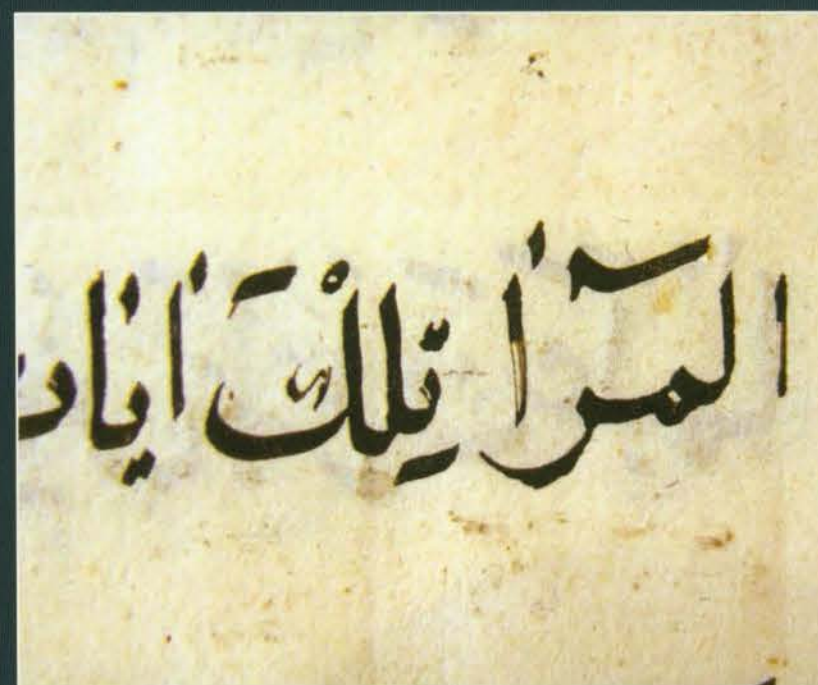 المٓراٰ تِلْكَ اٰيٰات